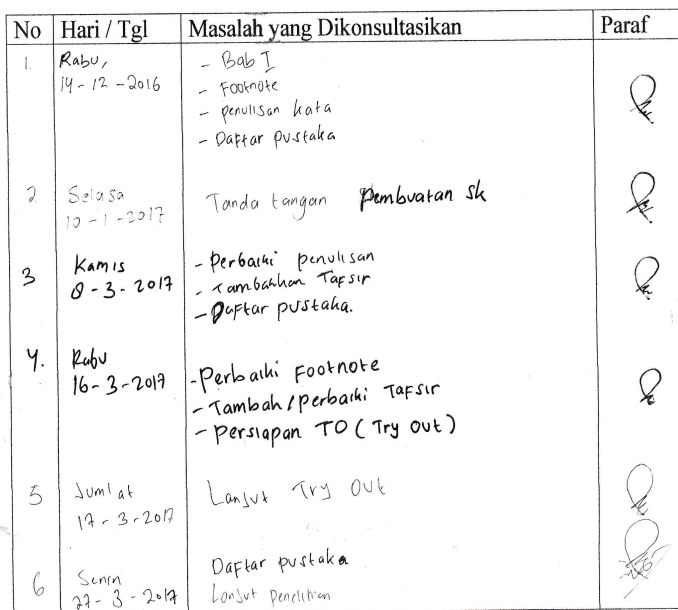 No Hari / Tgl Masalah yang Dikonsultasikan Paraf
1. Rabu, - Bab I
14-12-2016 - Footnote
- penulisan kata
- Daftar pustaka
2 Selasa Tanda tangan Pembuatan Sk
10-1-2017
3 Kamis - Perbaiki penulisan
8-3-2017 - Tambahkan Tafsir
- Daftar pustaka.
4. Rabu
16-3-2017 - Perbaiki Footnote
- Tambah/perbaiki Tafsir
- Persiapan TO (Try Out)
5 Jum'at Lanjut Try Out
17-3-2017
Daftar pustaka
6 Senin Lanjut Penelitian
27-3-2017